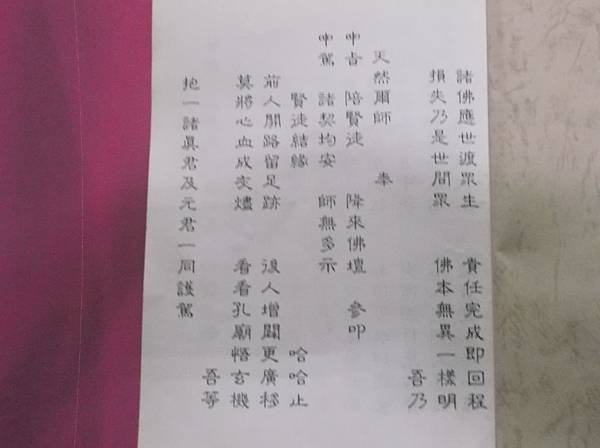 諸佛應世渡眾生　責任完成即回程
損失乃是世間眾　佛本無異一樣明
吾乃
天然爾師　奉
申旨　陪賢徒　降來佛壇　參叩
申駕　諸契均安　師無多示
賢徒結緣　哈哈止
前人開路留足跡　後人增闢更廣移
莫將心血成灰燼　看看孔廟悟玄機
吾等
抱一諸真君及元君一同護駕